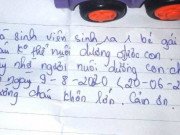 là sinh viên sinh ra 1 bé gái
K thể nuôi dưỡng được con
nhờ người nuôi dưỡng con
ngày 9-8-2020 (20-06-2
cháu khôn lớn. Cảm ơn